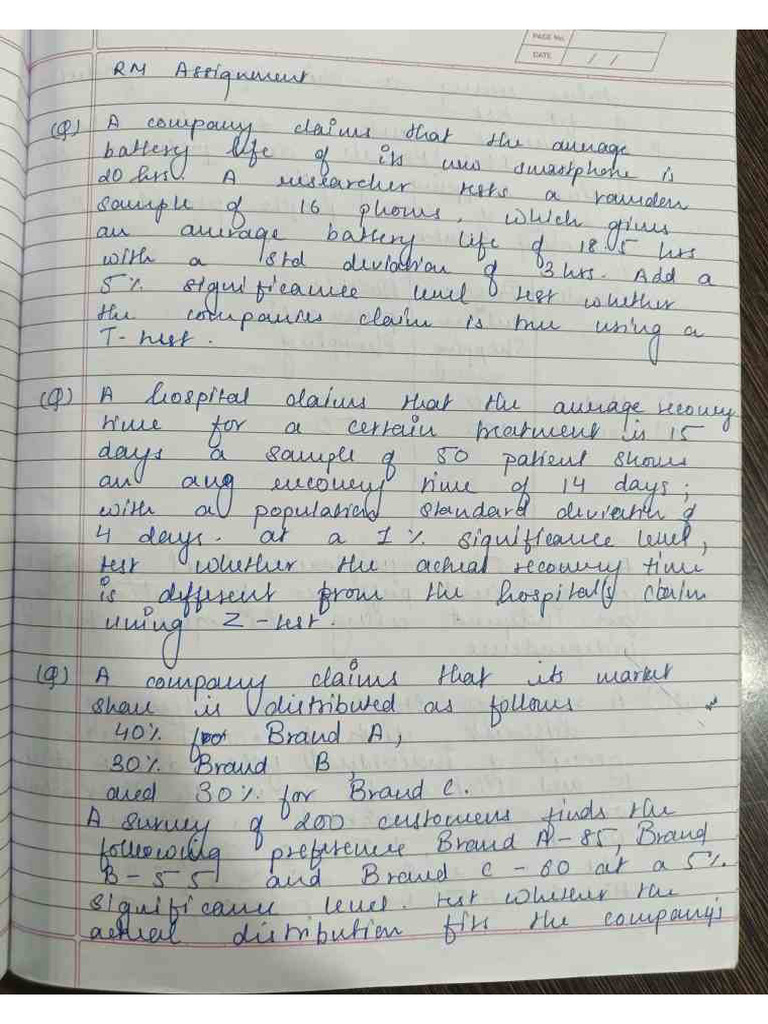 PAGE No.
DATE / /
RM Assignment
(Q) A company claims that the average
battery life of its new smartphone is
20 hrs. A researcher tests a random
sample of 16 phones, which gives
an average battery life of 18.5 hrs
with a std deviation of 3 hrs. Add a
5% significance level test whether
the companies claim is true using a
T-test.
(Q) A hospital claims that the average recovery
time for a certain treatment is 15
days a sample of 50 patient shows
an avg recovery time of 14 days;
with a population standard deviation of
4 days. at a 1% significance level,
test whether the actual recovery time
is different from the hospital(s) claim
using Z-test.
(Q) A company claims that its market
share is distributed as follows
40% for Brand A,
30% Brand B,
and 30% for Brand C.
A survey of 200 customers finds the
following preference Brand A-85, Brand
B-55 and Brand C-60 at a 5%
significance level. test whether the
actual distribution fits the company's